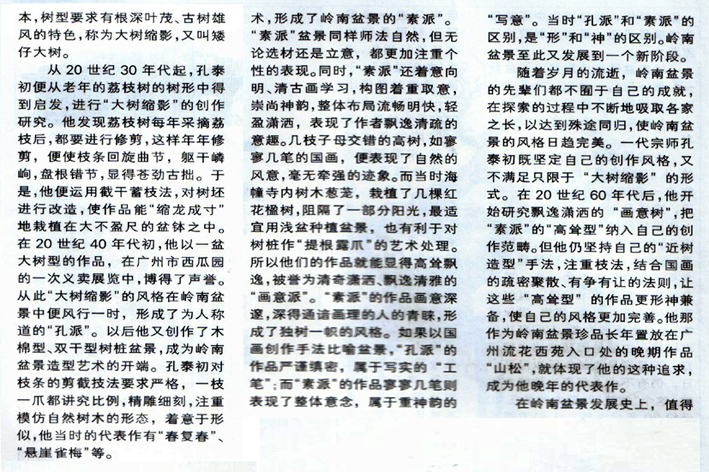 本，树型要求有根深叶茂、古树雄
风的特色，称为大树缩影，又叫矮
仔大树。
从 20 世纪 30 年代起，孔泰
初便从老年的荔枝树的树形中得
到启发，进行“大树缩影”的创作
研究。他发现荔枝树每年采摘荔
枝后，都要进行修剪，这样年年修
剪，便使枝条回旋曲节，躯干嶙
峋，盘根错节，显得苍劲古拙。于
是，他便运用截干蓄枝法，对树坯
进行改造，使作品能“缩龙成寸”
地栽植在大不盈尺的盆钵之中。
在 20 世纪 40 年代初，他以一盆
大树型的作品，在广州市西瓜园
的一次义卖展览中，博得了声誉。
从此“大树缩影”的风格在岭南盆
景中便风行一时，形成了为人称
道的“孔派”。以后他又创作了木
棉型、双干型树桩盆景，成为岭南
盆景造型艺术的开端。孔泰初对
枝条的剪截技法要求严格，一枝
一爪都讲究比例，精雕细刻，注重
模仿自然树木的形态，着意于形
似，他当时的代表作有“春复春”、
“悬崖雀梅”等。
术，形成了岭南盆景的“素派”。
“素派”盆景同样师法自然，但无
论选材还是立意，都更加注重个
性的表现。同时，“素派”还着意向
明、清古画学习，构图着重取意，
崇尚神韵，整体布局流畅明快，轻
盈潇洒，表现了作者飘逸清疏的
意趣。几枝子母交错的高树，如寥
寥几笔的国画，便表现了自然的
风意，毫无牵强的迹象。而当时海
幢寺内树木葱茏，栽植了几棵红
花楹树，阻隔了一部分阳光，最适
宜用浅盆种植盆景，也有利于对
树桩作“提根露爪”的艺术处理。
所以他们的作品就能显得高耸飘
逸，被誉为清奇潇洒、飘逸清雅的
“画意派”。“素派”的作品画意深
邃，深得通谙画理的人的青睐，形
成了独树一帜的风格。如果以国
画创作手法比喻盆景，“孔派”的
作品严谨缜密，属于写实的“工
笔”；而“素派”的作品寥寥几笔则
表现了整体意念，属于重神韵的
“写意”。当时“孔派”和“素派”的
区别，是“形”和“神”的区别。岭南
盆景至此又发展到一个新阶段。
随着岁月的流逝，岭南盆景
的先辈们都不囿于自己的成就，
在探索的过程中不断地吸取各家
之长，以达到殊途同归，使岭南盆
景的风格日趋完美。一代宗师孔
泰初既坚定自己的创作风格，又
不满足只限于“大树缩影”的形
式。在 20 世纪 60 年代后，他开
始研究飘逸潇洒的“画意树”，把
“素派”的“高耸型”纳入自己的创
作范畴。但他仍坚持自己的“近树
造型”手法，注重枝法，结合国画
的疏密聚散、有争有让的法则，让
这些“高耸型”的作品更形神兼
备，使自己的风格更加完善。他那
作为岭南盆景珍品长年置放在广
州流花西苑入口处的晚期作品
“山松”，就体现了他的这种追求，
成为他晚年的代表作。
在岭南盆景发展史上，值得